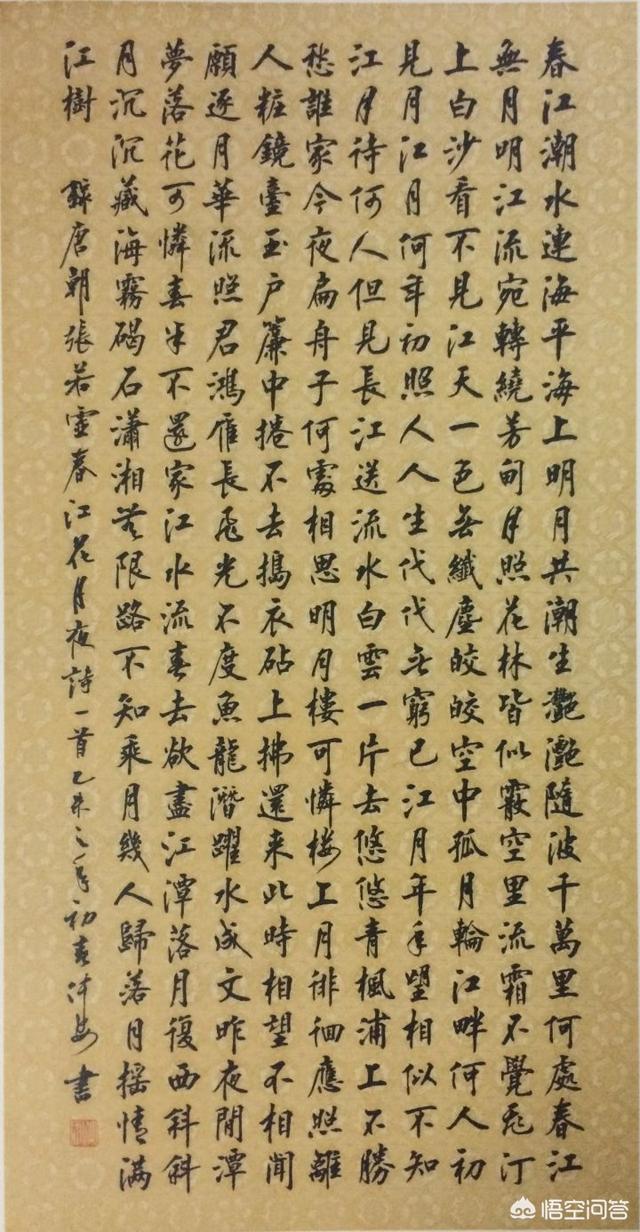 春江潮水連海平海上明月共潮生灧灧隨波千萬里何處春江
無月明江流宛轉繞芳甸月照花林皆似霰空里流霜不覺飛汀
上白沙看不見江天一色無纖塵皎皎空中孤月輪江畔何人初
見月江月何年初照人人生代代無窮已江月年年望相似不知
江月待何人但見長江送流水白雲一片去悠悠青楓浦上不勝
愁誰家今夜扁舟子何處相思明月樓可憐楼上月徘徊應照離
人粧鏡臺玉户簾中捲不去搗衣砧上拂還来此時相望不相聞
願逐月華流照君鴻雁長飛光不度魚龍潛躍水成文昨夜閒潭
夢落花可憐春半不還家江水流春去欲盡江潭落月復西斜斜
月沉沉藏海霧碣石瀟湘無限路不知乘月幾人歸落月摇情满
江樹 錄唐朝張若虛春江花月夜詩一首乙未之年初春 書
悟空问答